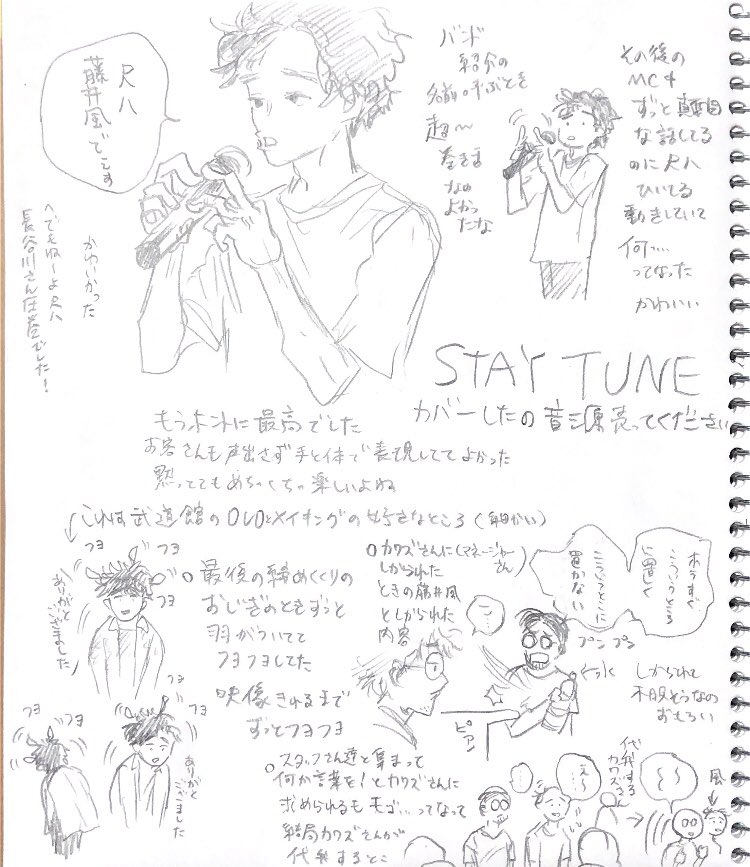 尺八
藤井風でぇす
かわいかった
へでもねーよ尺八
長谷川さん圧巻でした！
バンド
紹介の
名前呼ぶとき
超〜
巻き舌
なの
よかっ
たな
その後の
MCも
ずっと真面目
な話してる
のに尺八
ひいてる
動きしていて
何…
ってなった
かわいい
STAY TUNE
カバーしたの音源売ってください
もうホントに最高でした
お客さんも声出さず手と体で表現しててよかった
黙っててもめちゃくちゃ楽しいよね
これは武道館のDVDとメイキングの好きなところ（細かい）
フヨ
フヨ
フヨ
ありがと
ございました
最後の締めくくりの
おじぎのときずっと
羽がついてて
フヨフヨしてた
映像きれるまで
ずっとフヨフヨ
フヨ
フヨ
フヨ
フヨ
ありがと
ございました
カワズさんに（マネージャーさん）
しかられた
ときの藤井風
としかられた
内容
ホラすぐ
こういうところ
に置く
こういうとこに
置かない
…
プンプン
水
ピアノ
しかられて
不服そうなの
おもろい
スタッフさん達と集まって
何か言葉を！とカワズさんに
求められるもモゴ…ってなって
結局カワズさんが
代弁するとこ
…
え〜
代弁する
カワズさん
風